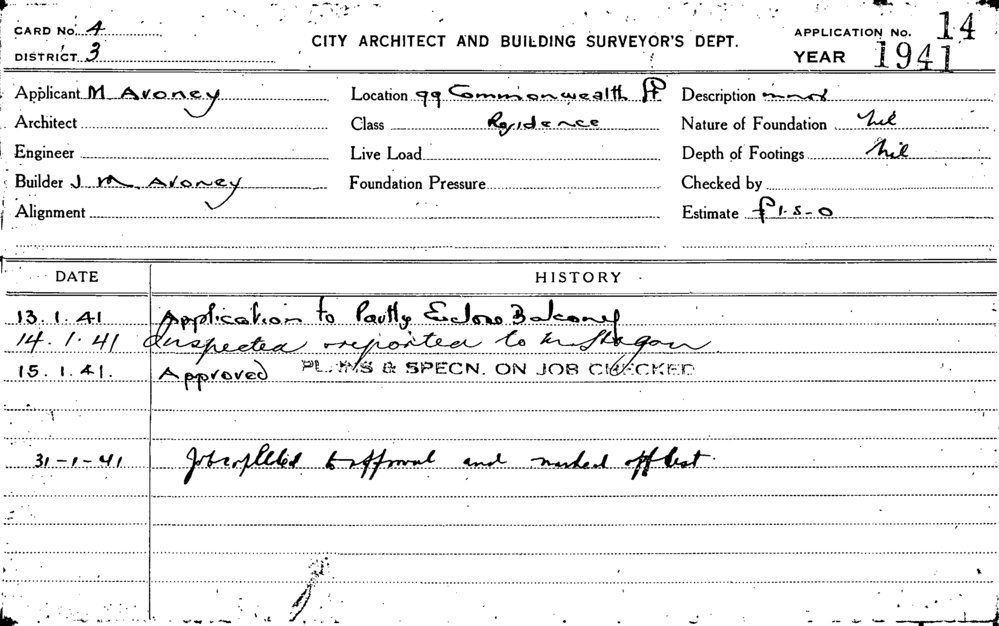 CARD No. 4
DISTRICT 3
CITY ARCHITECT AND BUILDING SURVEYOR'S DEPT.
APPLICATION No. 14
YEAR 1941
Applicant M Avoney Location 99 Commonwealth St Description
Architect Class Residence Nature of Foundation Nil
Engineer Live Load Depth of Footings Nil
Builder J M Avoney Foundation Pressure Checked by
Alignment Estimate £1-5-0
DATE HISTORY
13.1.41 Application to Partly Enclose Balcony
14.1.41 Inspected & reported to Mr
15.1.41. Approved PLANS & SPECN. ON JOB CHECKED
31-1-41 Job completed to approval and marked off list